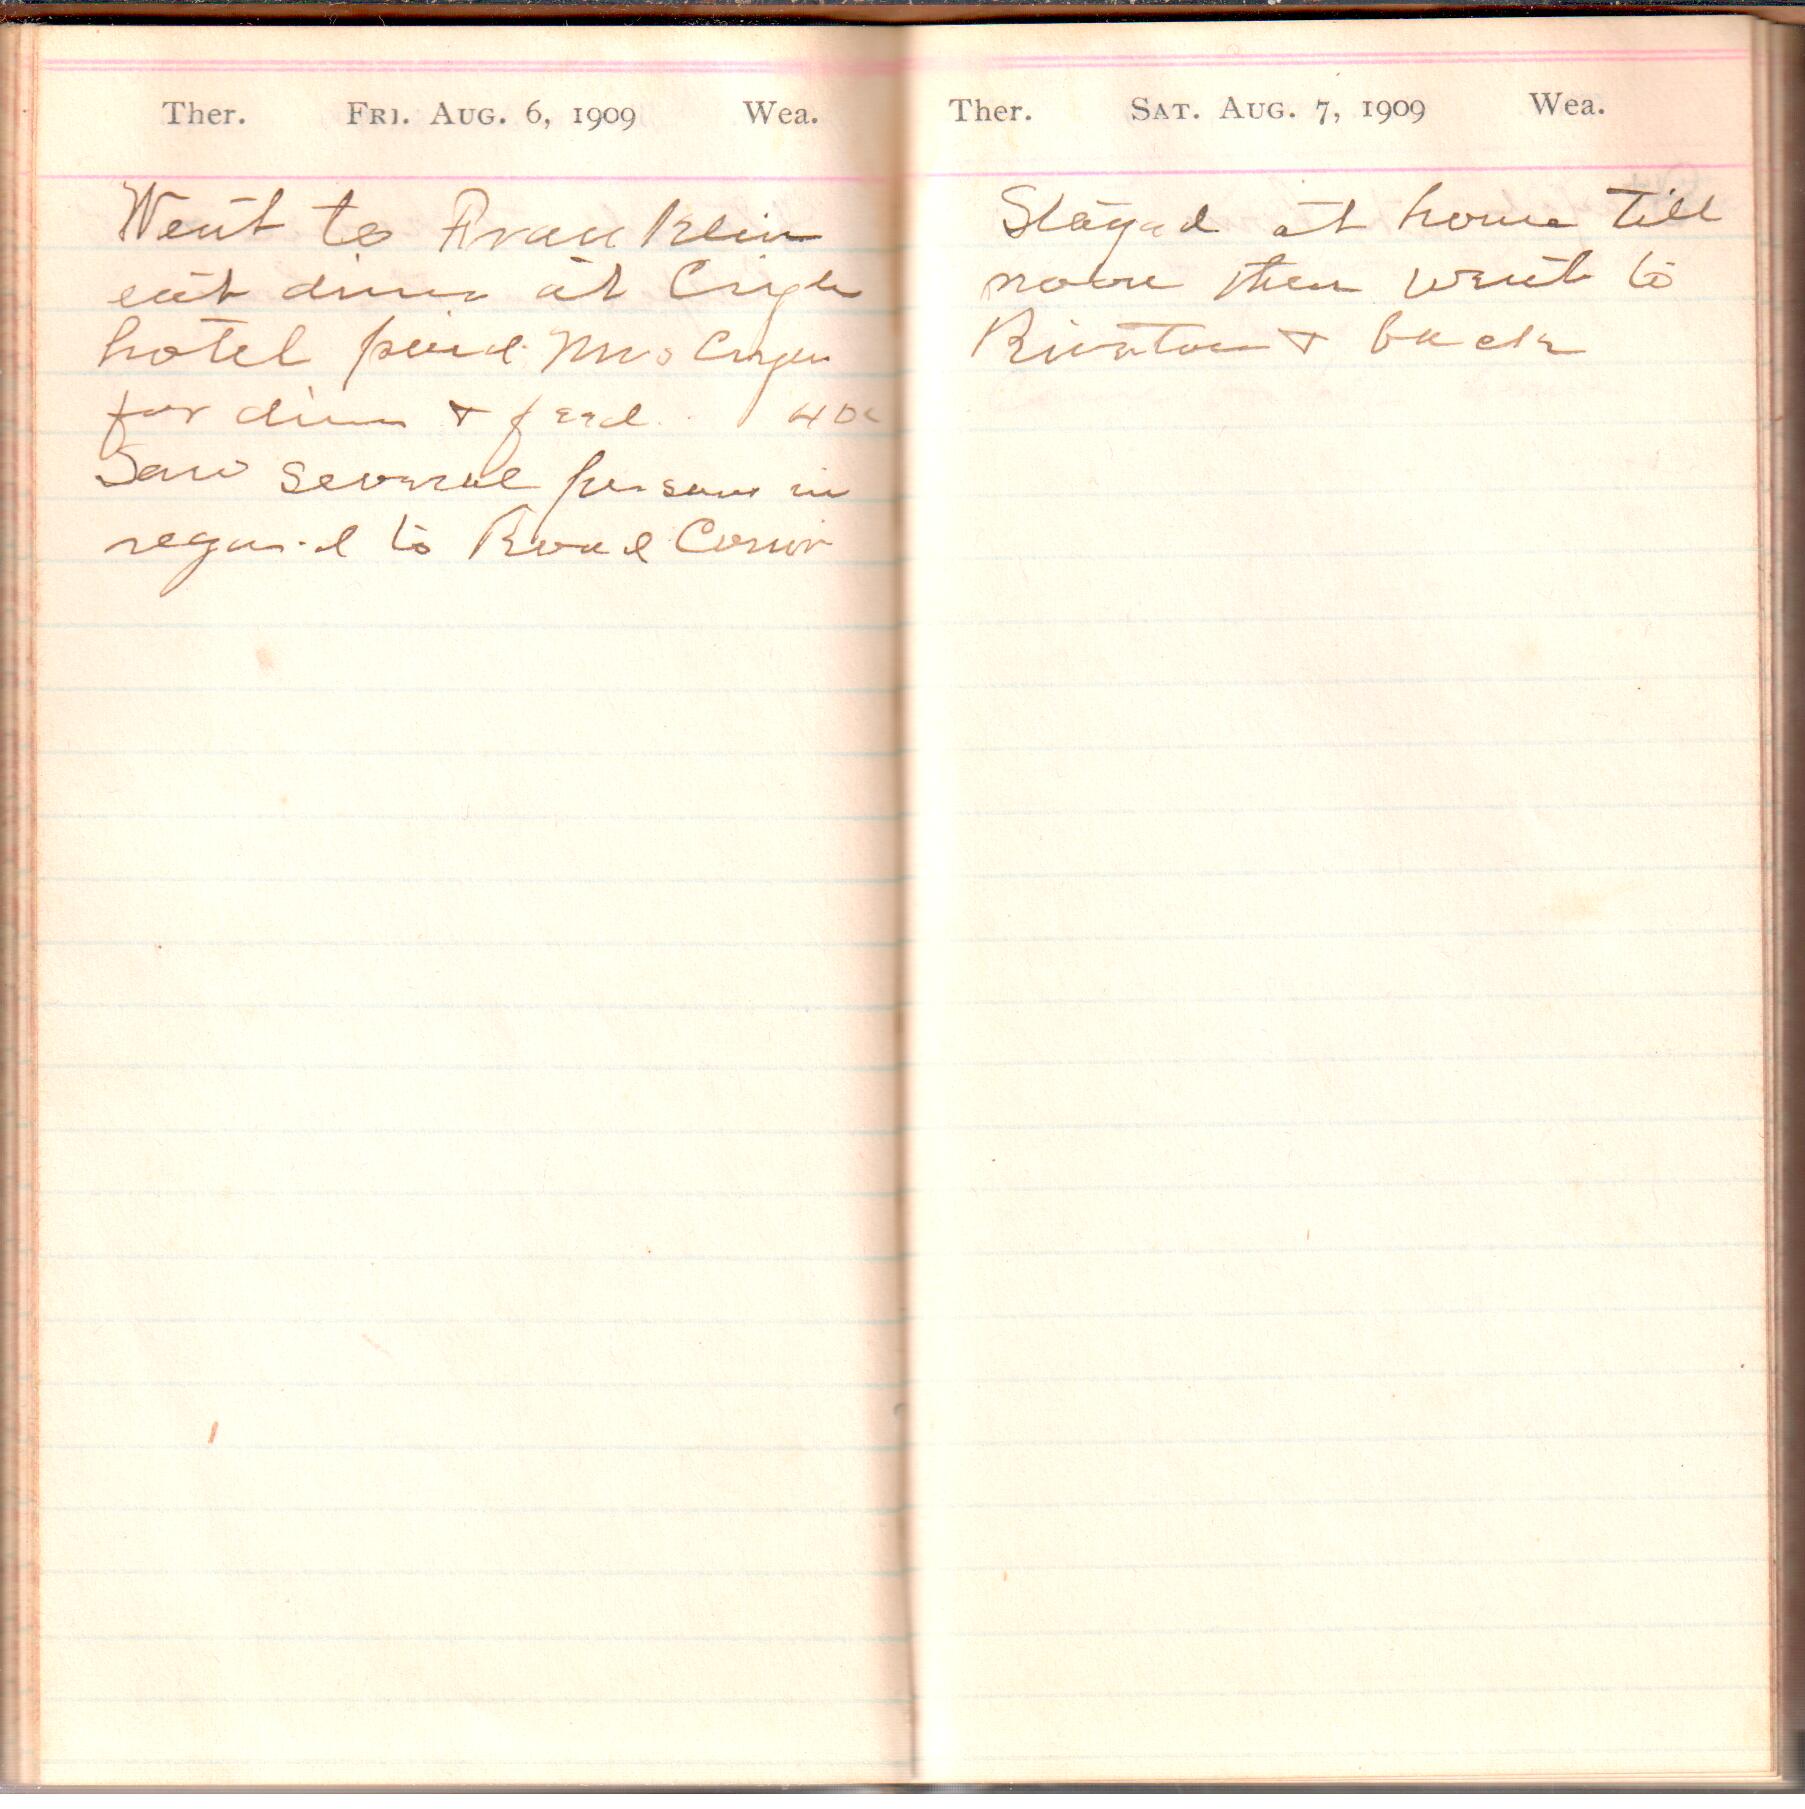 Ther. Fri. Aug. 6, 1909 Wea.
Went to Franklin
eat dinner at
hotel paid Mrs
for dinn & feed. 40c
Saw several persons in
regard to Road
Ther. Sat. Aug. 7, 1909 Wea.
Stayed at home till
noon then went to
& back